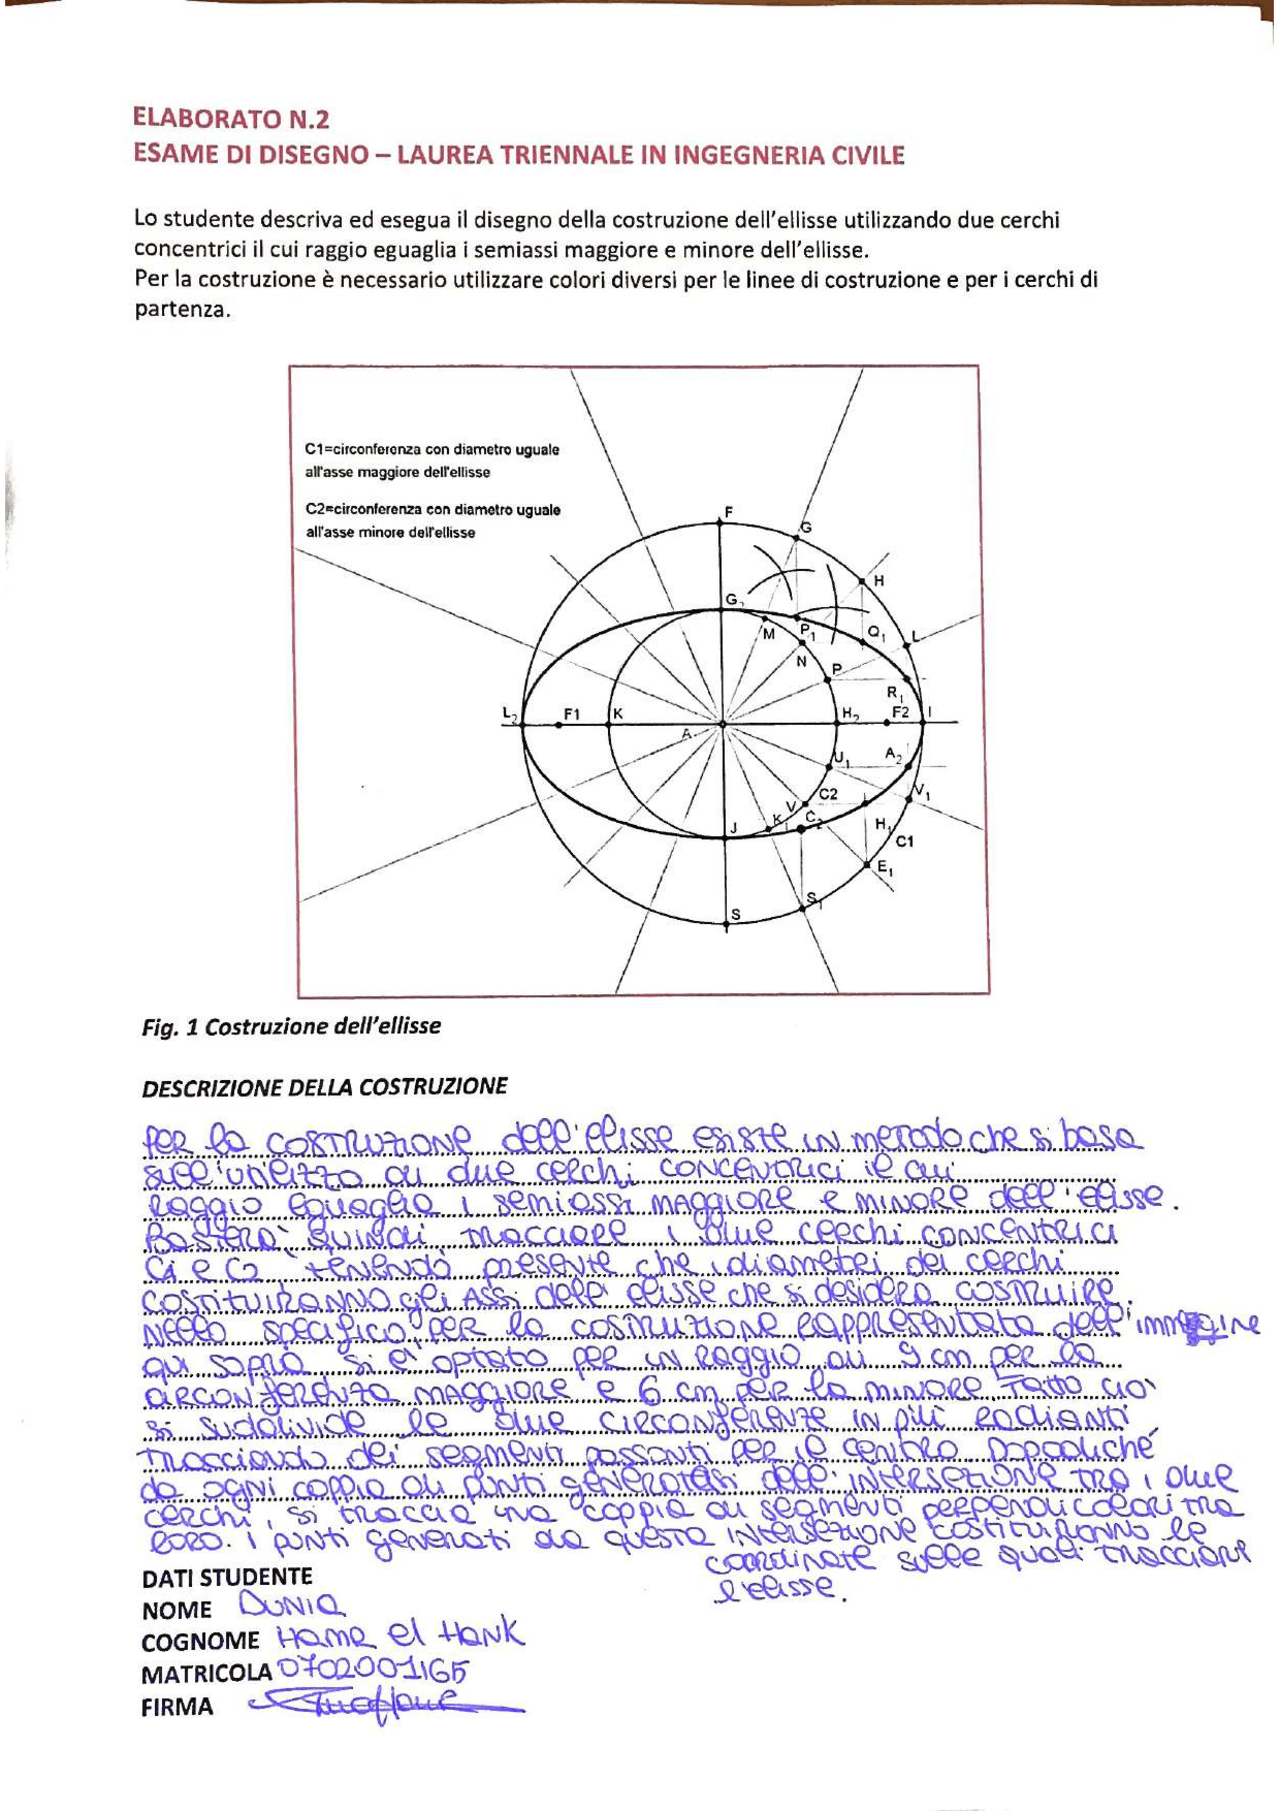 ELABORATO N.2
ESAME DI DISEGNO – LAUREA TRIENNALE IN INGEGNERIA CIVILE
Lo studente descriva ed esegua il disegno della costruzione dell'ellisse utilizzando due cerchi
concentrici il cui raggio eguaglia i semiassi maggiore e minore dell'ellisse.
Per la costruzione è necessario utilizzare colori diversi per le linee di costruzione e per i cerchi di
partenza.
C1=circonferenza con diametro uguale
all'asse maggiore dell'ellisse
C2=circonferenza con diametro uguale
all'asse minore dell'ellisse
F
G
H
G₂
M
P₁
Q₁
L
N
P
R₁
L₂
F1
K
A
H₂
F2
I
U₁
A₂
V₁
C2
V
K₁
C₂
H₁
C1
J
E₁
S₁
S
Fig. 1 Costruzione dell'ellisse
DESCRIZIONE DELLA COSTRUZIONE
PER la COSTRUZIONE dell'elisse esiste un metodo che si basa
sull'utilizzo di due cerchi CONCENTRICI il cui
Raggio eguaglia i semiassi MAGGIORE e MINORE dell'elisse.
Basterà quindi tracciare i due cerchi CONCENTRICI
C1 e C2 tenendo presente che i diametri dei cerchi
COSTITUIRANNO gli ASSI dell'elisse che si desidera COSTRUIRE.
Nello specifico, PER la COSTRUZIONE RAPPRESENTATA dell'immagine
qui sopra si è optato per un raggio di 9 cm per la
CIRCONFERENZA MAGGIORE e 6 cm per la MINORE Fatto ciò
si suddivide le due circonferenze in più radianti
tracciando dei segmenti passanti per il centro Dopodiché
da ogni coppia di punti generatasi dall'intersezione tra i due
cerchi, si traccia una coppia di segmenti perpendicolari tra
loro. i punti generati da questa INTERSEZIONE costituiranno le
coordinate sulle quali tracciare
l'elisse.
DATI STUDENTE
NOME DUNIA
COGNOME HAME el HANK
MATRICOLA 0702001165
FIRMA